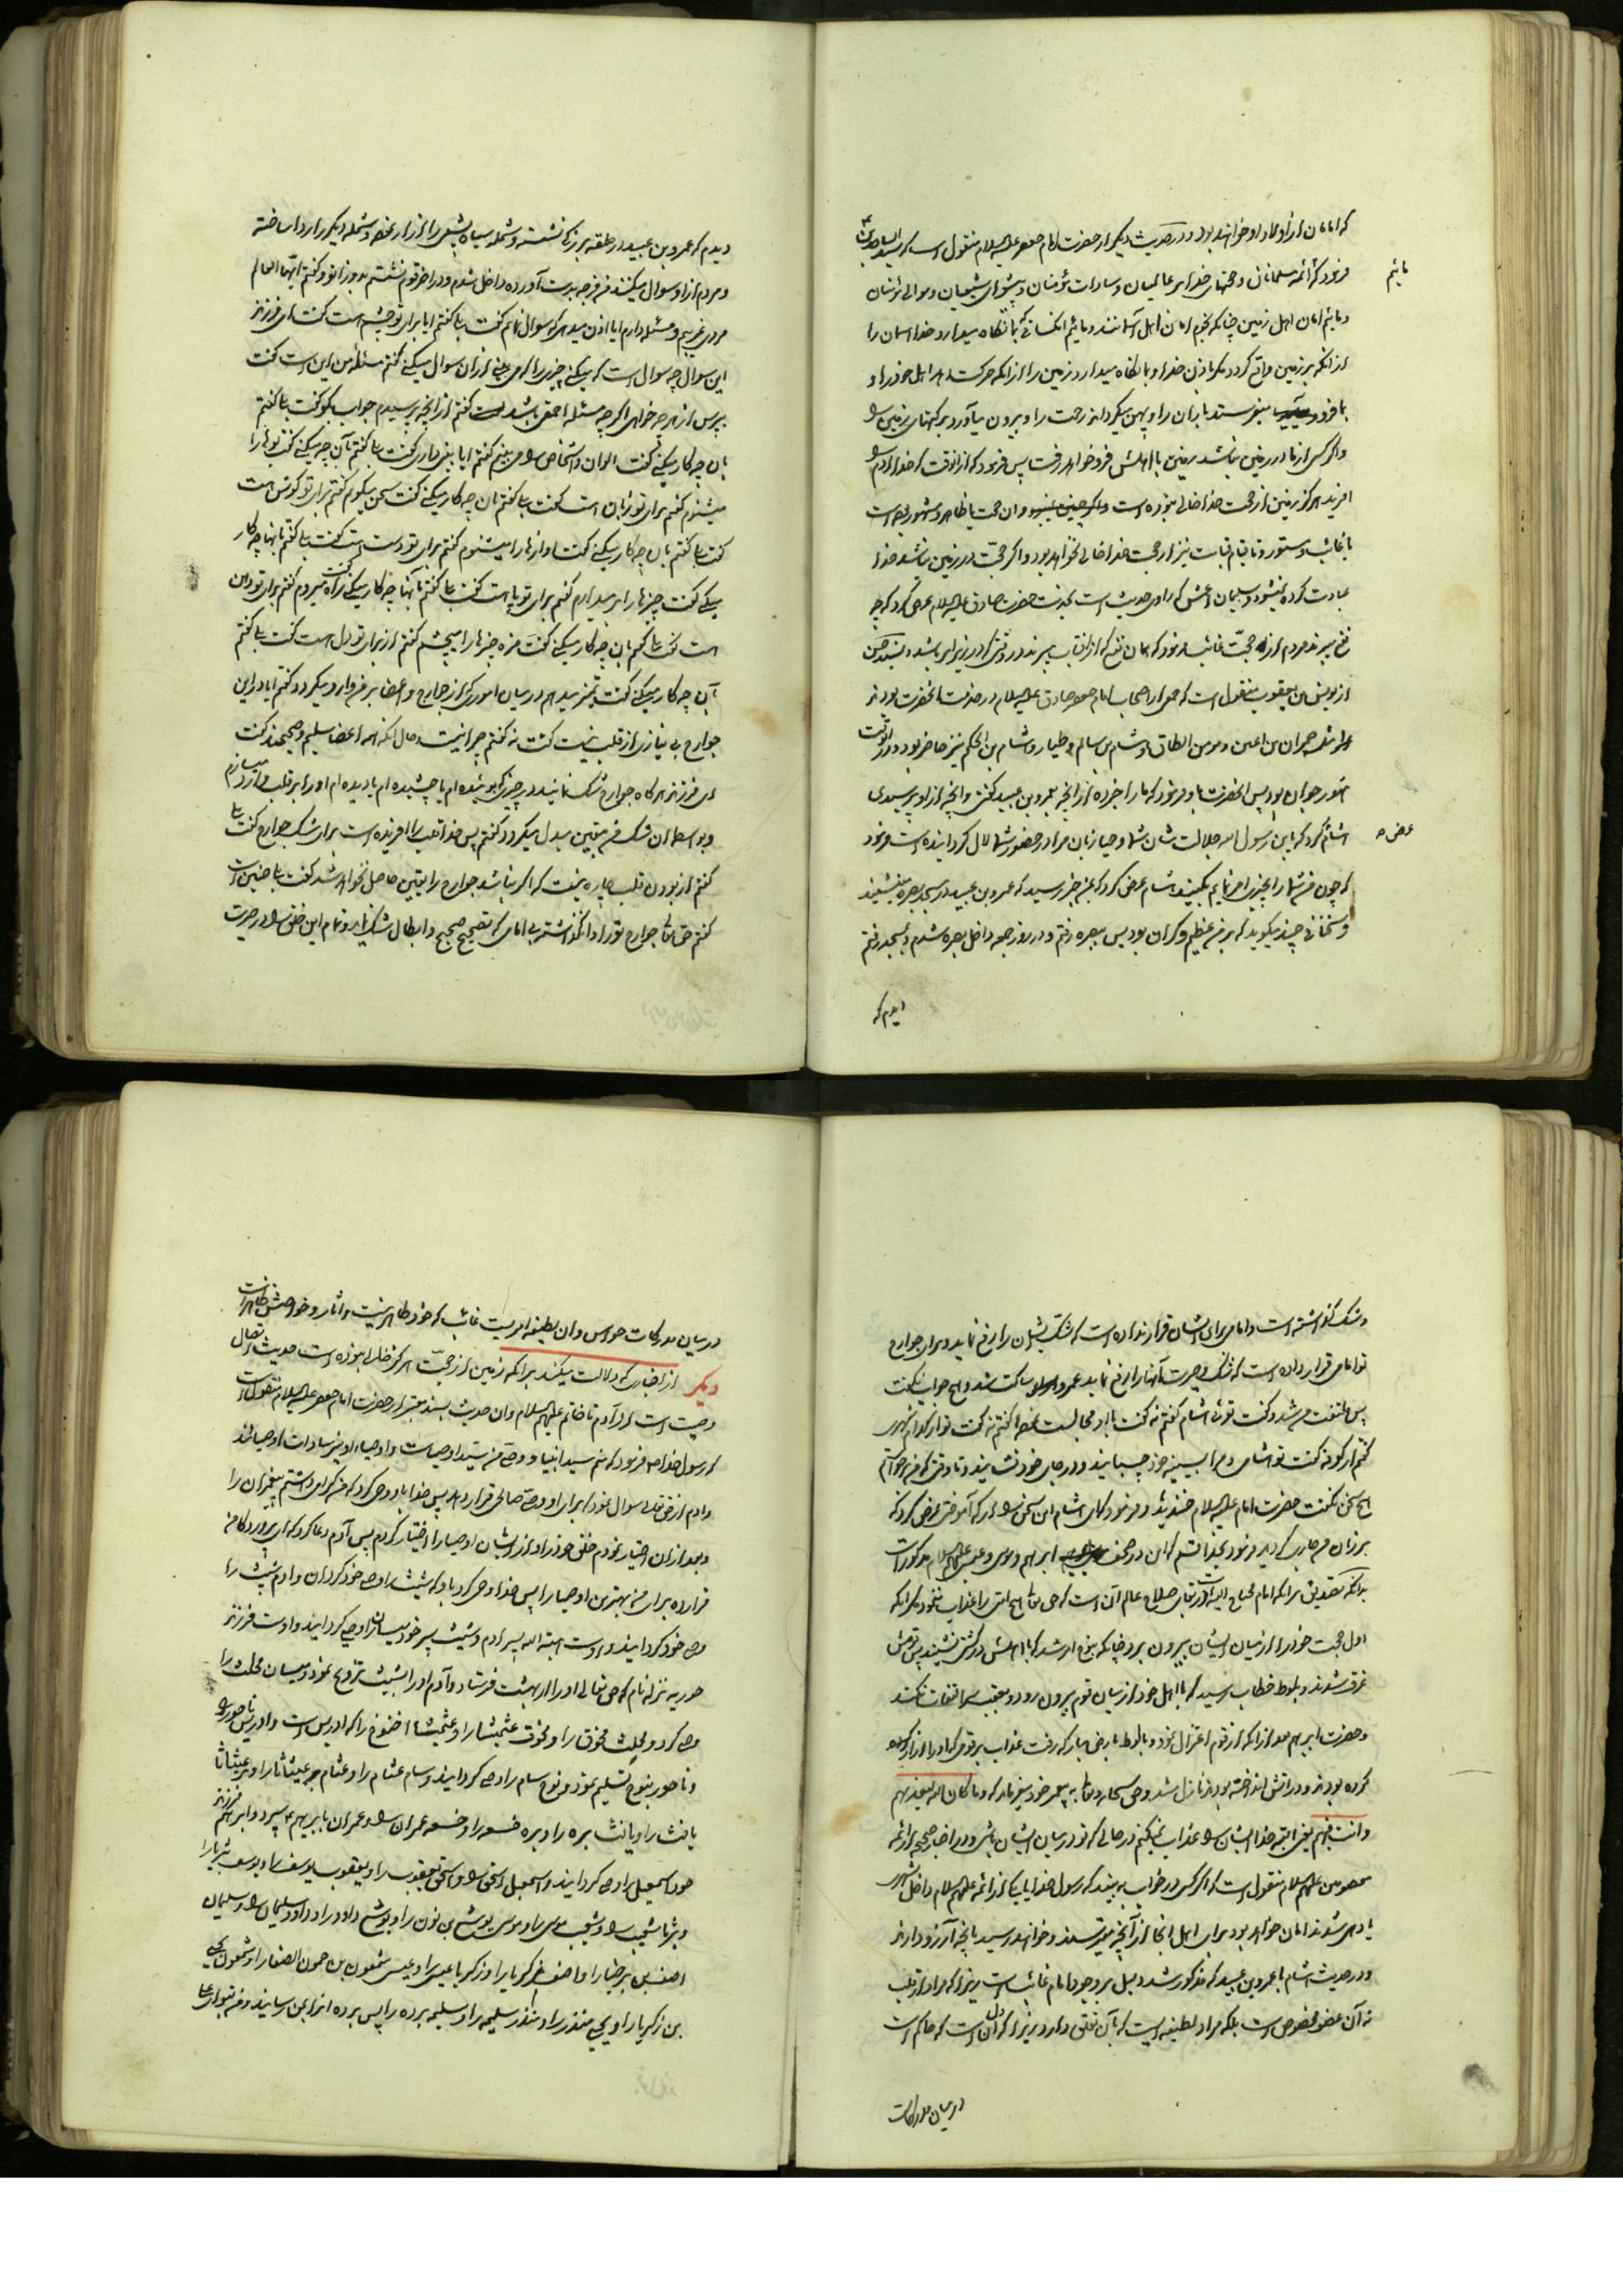 که امامان از اولاد او خواهند بود و در حدیث دیگر از حضرت امام جعفر علیه السلام منقول است که سید الساجدین ع
فرمود که ائمه مسلمانان و حجتهای خدا بر عالمیان و سادات مؤمنان و پیشوای شیعیان و موالی مؤمنان
مائیم
و مائیم امان اهل زمین چنانکه نجوم امان اهل آسمانند و مائیم آنکسانی که بما نگاه میدارد خدا آسمان را
از آنکه بر زمین واقع گردد مگر باذن خدا و بما نگاه میدارد زمین را از آنکه حرکت دهد اهل خود را و
بما فرو میفرستد باران را و پهن میگرداند رحمت را و بیرون میآورد برکتهای زمین را
و اگر کسی از ما در زمین نباشد زمین با اهلش فرو خواهد رفت پس فرمود که از انوقت که خدا آدم را
آفرید هرگز زمین از حجت خدا خالی نبوده است و آن حجت یا ظاهر و مشهور بوده است
یا غائب و مستور و تا قیام قیامت نیز از حجت خدا خالی نخواهد بود و اگر حجت در زمین نباشد خدا
عبادت کرده نمیشود و سلیمان اعمش که راوی حدیث است بخدمت حضرت صادق علیه السلام عرض کرد که چه
نفع میبرند مردم از حجت غائب فرمود که همان نفع که از آفتاب میبرند در وقتی که در زیر ابر باشد و بسند حسن
از یونس بن یعقوب منقول است که جمعی از اصحاب امام جعفر صادق علیه السلام در خدمت آنحضرت بودند
مانند حمران بن اعین و مؤمن الطاق و هشام بن سالم و طیار و هشام بن الحکم نیز حاضر بود و در آنوقت
هنوز جوان بود پس آنحضرت باو فرمود که ما را خبر ده از آنچه بعمرو بن عبید گفتی و آنچه از او پرسیدی
هشام گفت که یا بن رسول الله جلالت شان شما و حیا زبان مرا در حضور شما لال گردانیده است فرمود
عرض
که چون من شما را بچیزی امر نمایم بکنید هشام عرض کرد که بمن خبر رسید که عمرو بن عبید در مسجد بصره مینشیند
و سخنانی چند میگوید که بر من عظیم و گران بود پس ببصره رفتم و در روز جمعه داخل بصره شدم و بمسجد رفتم
دیدم که
دیدم که عمرو بن عبید در حلقه بزرگ نشسته و شمله سیاه پشمی را ازار نموده و شمله دیگر را ردا ساخته
و مردم از او سوال میکنند من فرجه بدست آورده داخل شدم و در آخر قوم نشستم بدو زانو و گفتم ایها العالم
مردی غریبم و مسئله دارم ایا اذن میدهی که سوال نمایم گفت بلی گفتم ایا برای تو چشم هست گفت ای فرزند
این سوال چه سوال است که میکنی چیزی را که می بینی از ان سوال میکنی گفتم مسئله من این است گفت
بپرس از هر چه خواهی اگر چه مسئله احمق باشد گفتم از آنچه پرسیدم جواب بگو گفت بلی گفتم
بان چه کار میکنی گفت الوان و اشخاص را می بینم گفتم ایا بینی داری گفت بلی گفتم بآن چه میکنی گفت بوها را
میشنوم گفتم برای تو زبان است گفت بلی گفتم بان چه کار میکنی گفت سخن میگویم گفتم برای تو گوش هست
گفت بلی گفتم بان چه کار میکنی گفت آوازها را میشنوم گفتم برای تو دست است گفت بلی گفتم بانها چه کار
میکنی گفت چیزها را بر میدارم گفتم برای تو پا هست گفت بلی گفتم بآنها چه کار میکنی گفت راه میروم گفتم برای تو دهن
هست گفت بلی گفتم بان چه کار میکنی گفت مزه چیزها را میچشم گفتم از برای تو دل هست گفت بلی گفتم
بآن چه کار میکنی گفت تمیز میدهم در میان اموری که از جوارح و اعضا بر من وارد میگردد گفتم ایا در این
جوارح بی نیازی از قلب نیست گفت نه گفتم چرا نیست و حال آنکه همه اعضا سلیم و صحیحند گفت
ای فرزند هر گاه جوارح شک نمایند در چیزی که بوئیده ام یا چشیده ام یا دیده ام او را بر قلب وارد میسازم
و بواسطه ان شک من بیقین مبدل میگردد گفتم پس خدا قلب را آفریده است برای شک جوارح گفت بلی
گفتم از بودن قلب چاره نیست که اگر نباشد جوارح را یقین حاصل نخواهد شد گفت بلی چنین است
گفتم حق تعالی جوارح تو را وا نگذاشته بی امامی که تصحیح صحیح و ابطال شک نماید و تمام این خلق را در حیرت
و شک گذاشته است و امامی برای ایشان قرار نداده است که شک ایشان را رفع نماید و برای جوارح
تو امامی قرار داده است که شک و حیرت آنها را رفع نماید عمرو ساکت شد و هیچ جواب نگفت
پس ملتفت من شد و گفت توئی هشام گفتم نه گفت با او مجالست نموده گفتم نه گفت تو از کدام شهری
گفتم از کوفه گفت تو هشامی و مرا بسینه خود چسپانید و در جای خود نشانید و تا وقتی که من برخواستم
هیچ سخن نگفت حضرت امام علیه السلام خندید و فرمود که ای هشام این سخن را از که آموختی عرض کرد که
بر زبان من جاری گردید فرمود بخدا قسم که این در صحف ابراهیم و موسی و عیسی علیهم السلام مذکور است
بدانکه تصدیق بر آنکه امام محتاج الیه است در بقای صلاح عالم آنست که حق تعالی هیچ امتی را عذاب ننمود مگر آنکه
اول حجت خود را از میان ایشان بیرون برد چنانکه بنوح امر شد که با اهلش در کشتی نشیند پس قومش
غرق شوند و بلوط خطاب رسید که با اهل خود از میان قوم بیرون رود و بعقب سر التفات نکند
و حضرت ابراهیم بعد از آنکه از قوم اعتزال نمود و با لوط بارض مبارکه رفت عذاب بر قومی که او را انکار
کرده بودند و در اتش انداخته بودند نازل شد و حق سبحانه و تعالی به پیغمبر خود میفرماید که و ما کان الله لیعذبهم
و انت فیهم یعنی البته خدا ایشان را عذاب نمیکند در حالی که تو در میان ایشان باشی و در اخبار صحیحه از ائمه
معصومین علیهم السلام منقول است که اگر کسی در خواب به بیند که رسول خدا یا یکی از ائمه علیهم السلام داخل شهری
یا دهی شدند امان خواهد بود برای اهل آنجا از آنچه میترسند و خواهند رسید بانچه آرزو دارند
و در حدیث هشام با عمرو بن عبید که مذکور شد دلیل بر وجود امام غائب است زیرا که مراد از قلب
نه آن عضو مخصوص است بلکه مراد لطیفه ایست که بآن تعلق دارد زیرا که آن دل است که حاکم است
در میان مدرکات
در میان مدرکات حواس و ان لطیفه امریست غائب که خود ظاهر نیست و اثار و خواصش ظاهر است
دیگر از اخباری که دلالت میکند بر آنکه زمین از حجت هرگز خالی نبوده است حدیث اتصال
وصیت است از آدم تا خاتم علیهم السلام و ان حدیث بسند معتبر از حضرت امام جعفر علیه السلام منقول است
که رسول خدا ص فرمود که منم سید انبیا و وصی من سید اوصیاست و اوصیاء او نیز سادات اوصیائند
و ادم از حق تعالی سوال نمود که برای او وصی صالحی قرار دهد پس خدا باو وحی کرد که من گرامی داشتم پیغمبران را
و بعد از ان اختیار نمودم خلق خود را و از ایشان اوصیا را اختیار کردم پس آدم دعا کرد که ای پروردگار من
قرار ده برای من بهترین اوصیا را پس خدا وحی کرد باو که شیث را وصی خود گردان و ادم شیث را
وصی خود گردانید و اوست هبة الله پسر ادم و شیث پسر خود شبان را وصی گردانید و اوست فرزند
حوریه نزله نام که حق تعالی او را از بهشت فرستاد و آدم او را بشیث تزویج نمود و شبان محلث را
وصی کرد و محلث محوق را و محوق عثمیشا را و عثمیشا اخنوخ را که ادریس است و ادریس ناحور را
و ناحور بنوح تسلیم نمود و نوح سام را وصی گردانید و سام عثام را و عثام عیثاثا را و عیثاثا
یافث را و یافث بره را و بره خفسه را و خفسه عمران را و عمران بابراهیم سپرد و ابراهیم فرزند
خود اسمعیل را وصی گردانید و اسمعیل اسحق را و اسحق یعقوب را و یعقوب یوسف را و یوسف بثریا را
و بثریا شعیب را و شعیب موسی را و موسی یوشع بن نون را و یوشع داود را و داود سلیمان را و سلیمان
اصف بن برخیا را و اصف زکریا را و زکریا عیسی را و عیسی شمعون بن حمون الصفا را و شمعون یحیی
بن زکریا را و یحیی منذر را و منذر سلیمه را و سلیمه برده را پس برده انرا بمن رسانید و من بتو ای علی